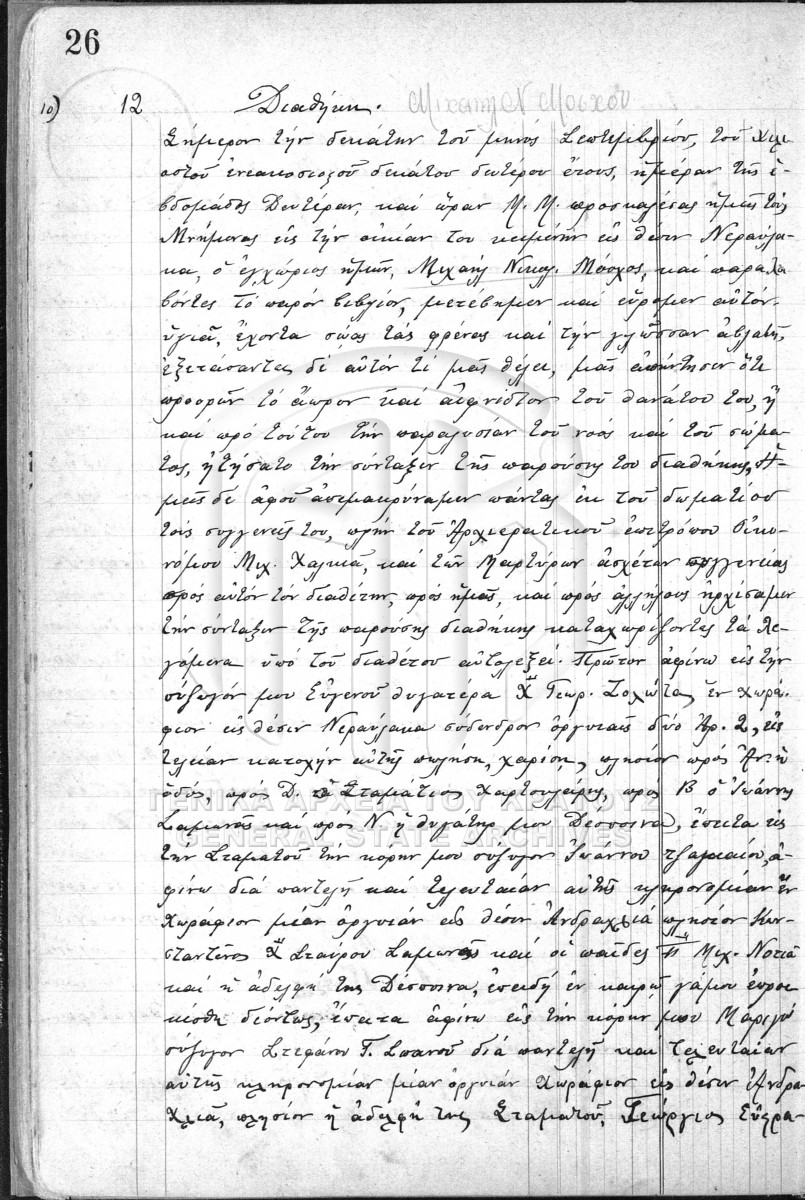 26
10) 12 Διαθήκη. Μιχαήλ Ν Μόσχου
Σήμερον τὴν δεκάτην τοῦ μηνὸς Σεπτεμβρίου, τοῦ χιλι
οστοῦ ἐνεακοσιοστοῦ δεκάτου δευτέρου ἔτους, ἡμέραν τῆς ἑ-
βδομάδος Δευτέραν, καὶ ὥραν Μ. Μ. προσκαλέσας ἡμᾶς τοὺς
Μνήμονας εἰς τὴν οἰκίαν του κειμένην εἰς θέσιν Νεραύλα-
κα, ὁ ἐγχώριος ἡμῶν, Μιχαὴλ Νικολ. Μόσχος, καὶ παραλα
βόντες τὸ παρὸν βιβλίον, μετέβημεν καὶ εὕρομεν αὐτὸν
ὑγιᾶ, ἔχοντα σώας τὰς φρένας καὶ τὴν γλῶσσαν ἀβλαβῆ,
ἐξετάσαντες δὲ αὐτὸν τί μᾶς θέλει, μᾶς ἀπήντησεν ὅτι
προορῶν τὸ ἄωρον καὶ αἰφνίδιον τοῦ θανάτου του, ἢ
καὶ πρὸ τούτου τὴν παραλυσίαν τοῦ νοὸς καὶ τοῦ σώμα-
τος, ᾐτήσατο τὴν σύνταξιν τῆς παρούσης του διαθήκης, Ἡ-
μεῖς δὲ ἀφοῦ ἀπεμακρύναμεν πάντας ἐκ τοῦ δωματίου
τοὺς συγγενεῖς του, πλὴν τοῦ Ἀρχιερατικοῦ ἐπιτρόπου Οἰκο-
νόμου Μιχ. Χαλκιᾶ, καὶ τῶν Μαρτύρων ἀσχέτων συγγενείας
πρὸς αὐτὸν τὸν διαθέτην, πρὸς ἡμᾶς, καὶ πρὸς ἀλλήλους ἠρχίσαμεν
τὴν σύνταξιν τῆς παρούσης διαθήκης καταχωρίζοντες τὰ λε-
γόμενα ὑπὸ τοῦ διαθέτου αὐτολεξεί. Πρῶτον ἀφίνω εἰς τὴν
σύζυγόν μου Εὐγενοῦ θυγατέρα Χ" Γεωρ. Σολώτα, ἓν χωρά-
φιον εἰς θέσιν Νεραύλακα σύδενδρον ὀργυιαῖς δύο Ἀρ. 2, εἰς
τελείαν κατοχὴν αὐτῆς πωλήση, χαρίση, πλησίον πρὸς Ἀν. ἡ
ὁδός, πρὸς Δ. ὁ Σταμάτιος Χαρτουλάρης, πρὸς Β ὁ Ἰωάννης
Σαμωνᾶς καὶ πρὸς Ν ἡ θυγάτηρ μου Δέσποινα, ἔπειτα εἰς
τὴν Σταματοῦ τὴν κόρην μου σύζυγον Ἰωάννου τζαμαίου, ἀ-
φίνω διὰ παντελῆ καὶ τελευταίαν αὐτῆς κληρονομίαν ἓν
χωράφιον μίαν ὀργυιὰν εἰς θέσιν Ἀνδραχλιά πλησίον Κων-
σταντῖνος Χ" Σταύρου Σαμωνᾶς καὶ οἱ παῖδες Π" Μιχ. Νοτιᾶ
καὶ ἡ ἀδελφή της Δέσποινα, ἐπειδὴ ἐν καιρῷ γάμου ἐπροι-
κίσθη δεόντως, ἔπειτα ἀφίνω εἰς τὴν κόρην μου Μαριγώ
σύζυγον Στεφάνου Γ. Σπανοῦ διὰ παντελῆ καὶ τελευταίαν
αὐτῆς κληρονομίαν μίαν ὀργυιὰν χωράφιον εἰς θέσιν Ἀνδρα-
χλιά, πλησίον ἡ ἀδελφή της Σταματοῦ, Γεώργιος Εὐφρα-
ΓΕΝΙΚΑ ΑΡΧΕΙΑ ΤΟΥ ΚΡΑΤΟΥΣ
GENERAL STATE ARCHIVES